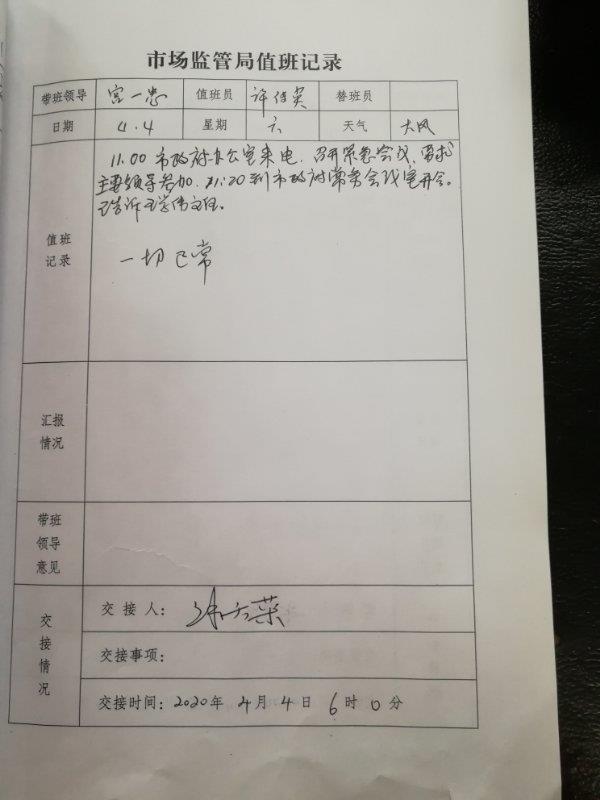 市场监管局值班记录
带班领导 宫一忠 值班员 许 替班员
日期 4.4 星期 六 天气 大风
值班记录
11:00 市政府办公室来电，召开紧急会议，要求
主要领导参加，11:20到市政府常委会议室开会。
已告诉
一切正常
汇报情况
带班领导意见
交接情况
交接人：
交接事项：
交接时间：2020年 4月 4日 6时 0分